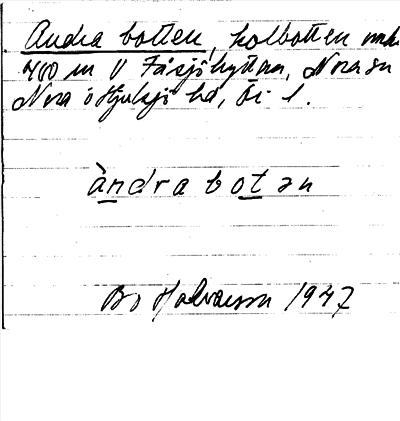 Andra botten, kolbotten
400 m V Fåsjöhyttan, Nora sn
Nora o Hjulsjö hd, bi 1.
àndra botən
Bo Halvarson 1947